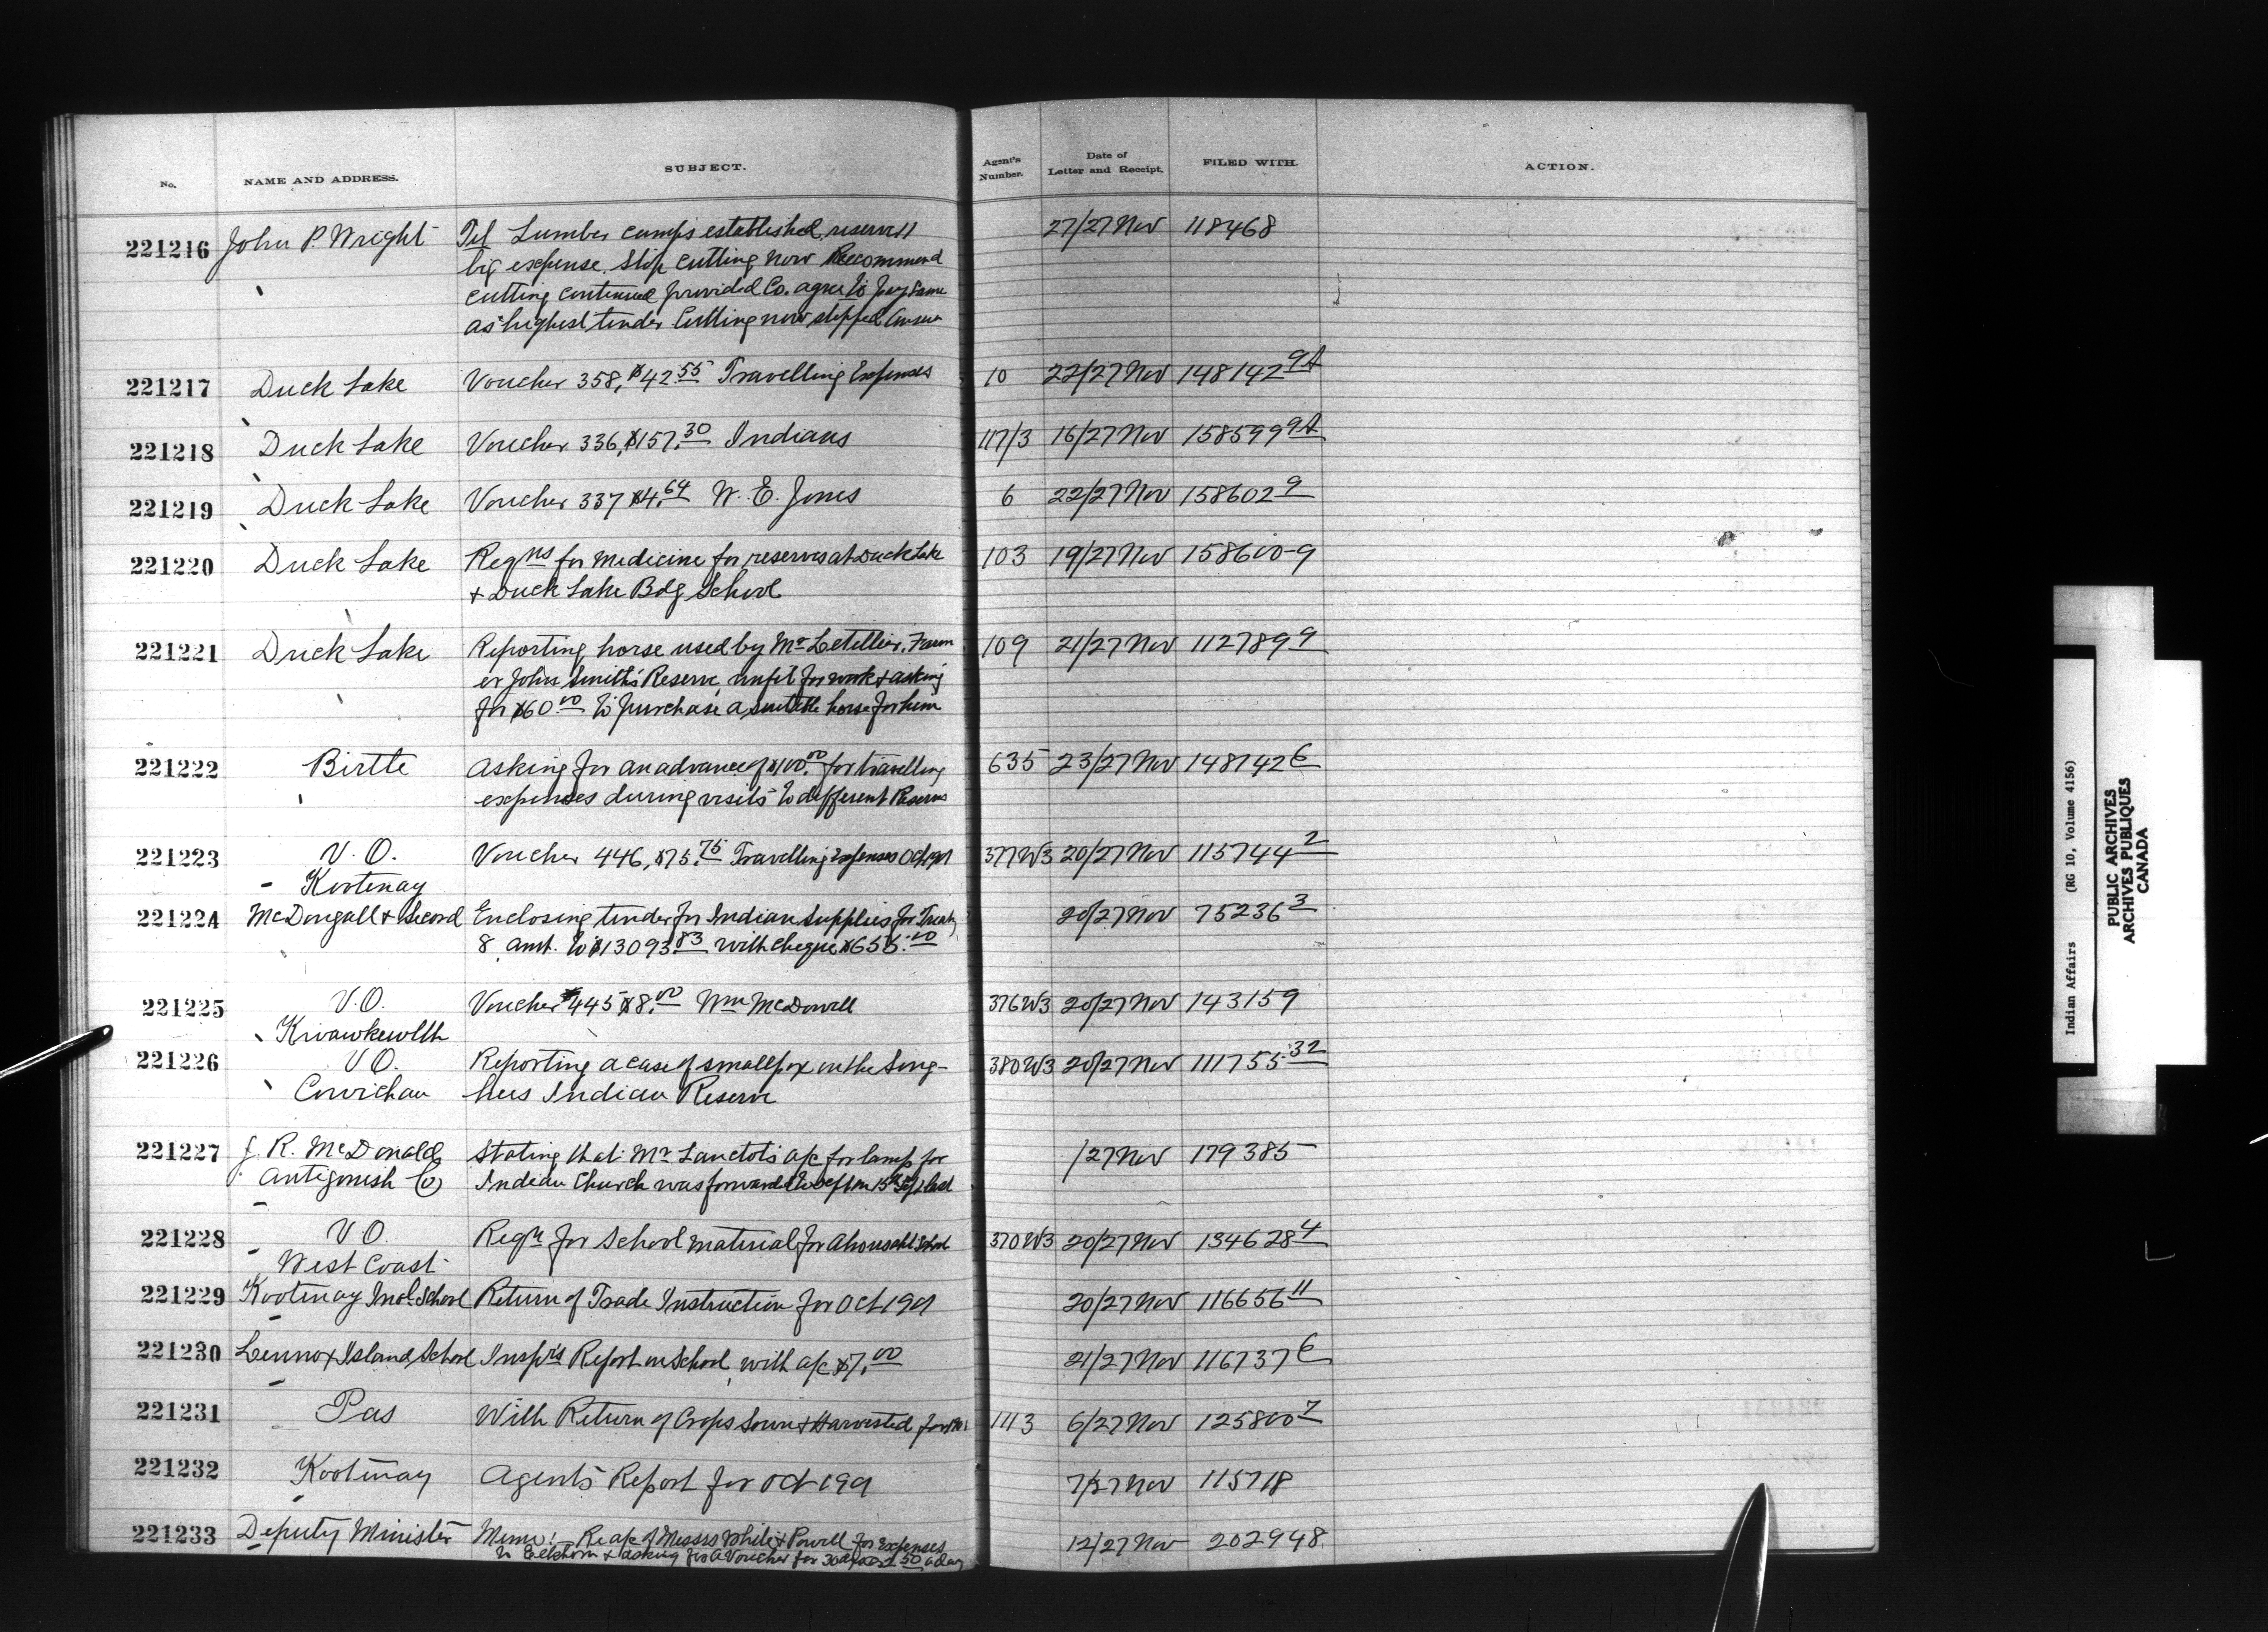 No. NAME AND ADDRESS. SUBJECT. Agent's Number. Date of Letter and Receipt. FILED WITH. ACTION.
221216 John P. Wright Tel Lumber camps established, reserve 11 27/27 Nov 118468
big expense. Stop cutting now Recommend
cutting continued provided Co. agree to pay same
as highest tender Cutting now stopped Answer
221217 Duck Lake Voucher 358, $42.55 Travelling Expenses 10 22/27 Nov 148142 9A
221218 Duck Lake Voucher 336, $157.30 Indians 117/3 16/27 Nov 158599 9A
221219 Duck Lake Voucher 337 $4.64 W. E. Jones 6 22/27 Nov 158602 9
221220 Duck Lake Reqns for medicine for reserves at Duck Lake 103 19/27 Nov 158600-9
+ Duck Lake Bdg School
221221 Duck Lake Reporting horse used by Mr Letellier, Farm 109 21/27 Nov 112789 9
er John Smith's Reserve, unfit for work + asking
for $60.00 to purchase a suitable horse for him
221222 Birtle Asking for an advance of $100.00 for travelling 635 23/27 Nov 148142 6
expenses during visits to different Reserves
221223 V. O. Voucher 446, $75.75 Travelling Expenses Oct 1901 377W3 20/27 Nov 115744 2
Kootenay
221224 McDougall + Secord Enclosing tender for Indian Supplies for Treaty 20/27 Nov 75236 3
8 amt. to $13093.83 with cheque $655.00
221225 V.O. Voucher 445 $8.00 Wm McDowell 376W3 20/27 Nov 143159
Kwawkewlth
221226 V.O. Reporting a case of smallpox on the Song- 380W3 20/27 Nov 111755 32
Cowichan hees Indian Reserve
221227 J. R. McDonald Stating that Mr Lanctot's a/c for lamp for /27 Nov 179385
Antigonish Co Indian Church was forwarded to Dept on 15th Sept last
221228 V O. Reqn for School material for Ahousaht School 370W3 20/27 Nov 134628 4
West Coast
221229 Kootenay Indl School Return of Trade Instruction for Oct 1901 20/27 Nov 116656 11
221230 Lennox Island School Insp'rs Report on School, with a/c $7.00 21/27 Nov 116737 6
221231 Pas With Return of Crops Sown + Harvested for 1901 1113 6/27 Nov 125800 7
221232 Kootenay Agent's Report for Oct 1901 7/27 Nov 115718
221233 Deputy Minister Memo:- Re a/c of Messrs White + Powell for Expenses 12/27 Nov 202948
to Elkhorn + asking for a Voucher for 30 days at 2.50 a day
Indian Affairs (RG 10, Volume 4156)
PUBLIC ARCHIVES
ARCHIVES PUBLIQUES
CANADA